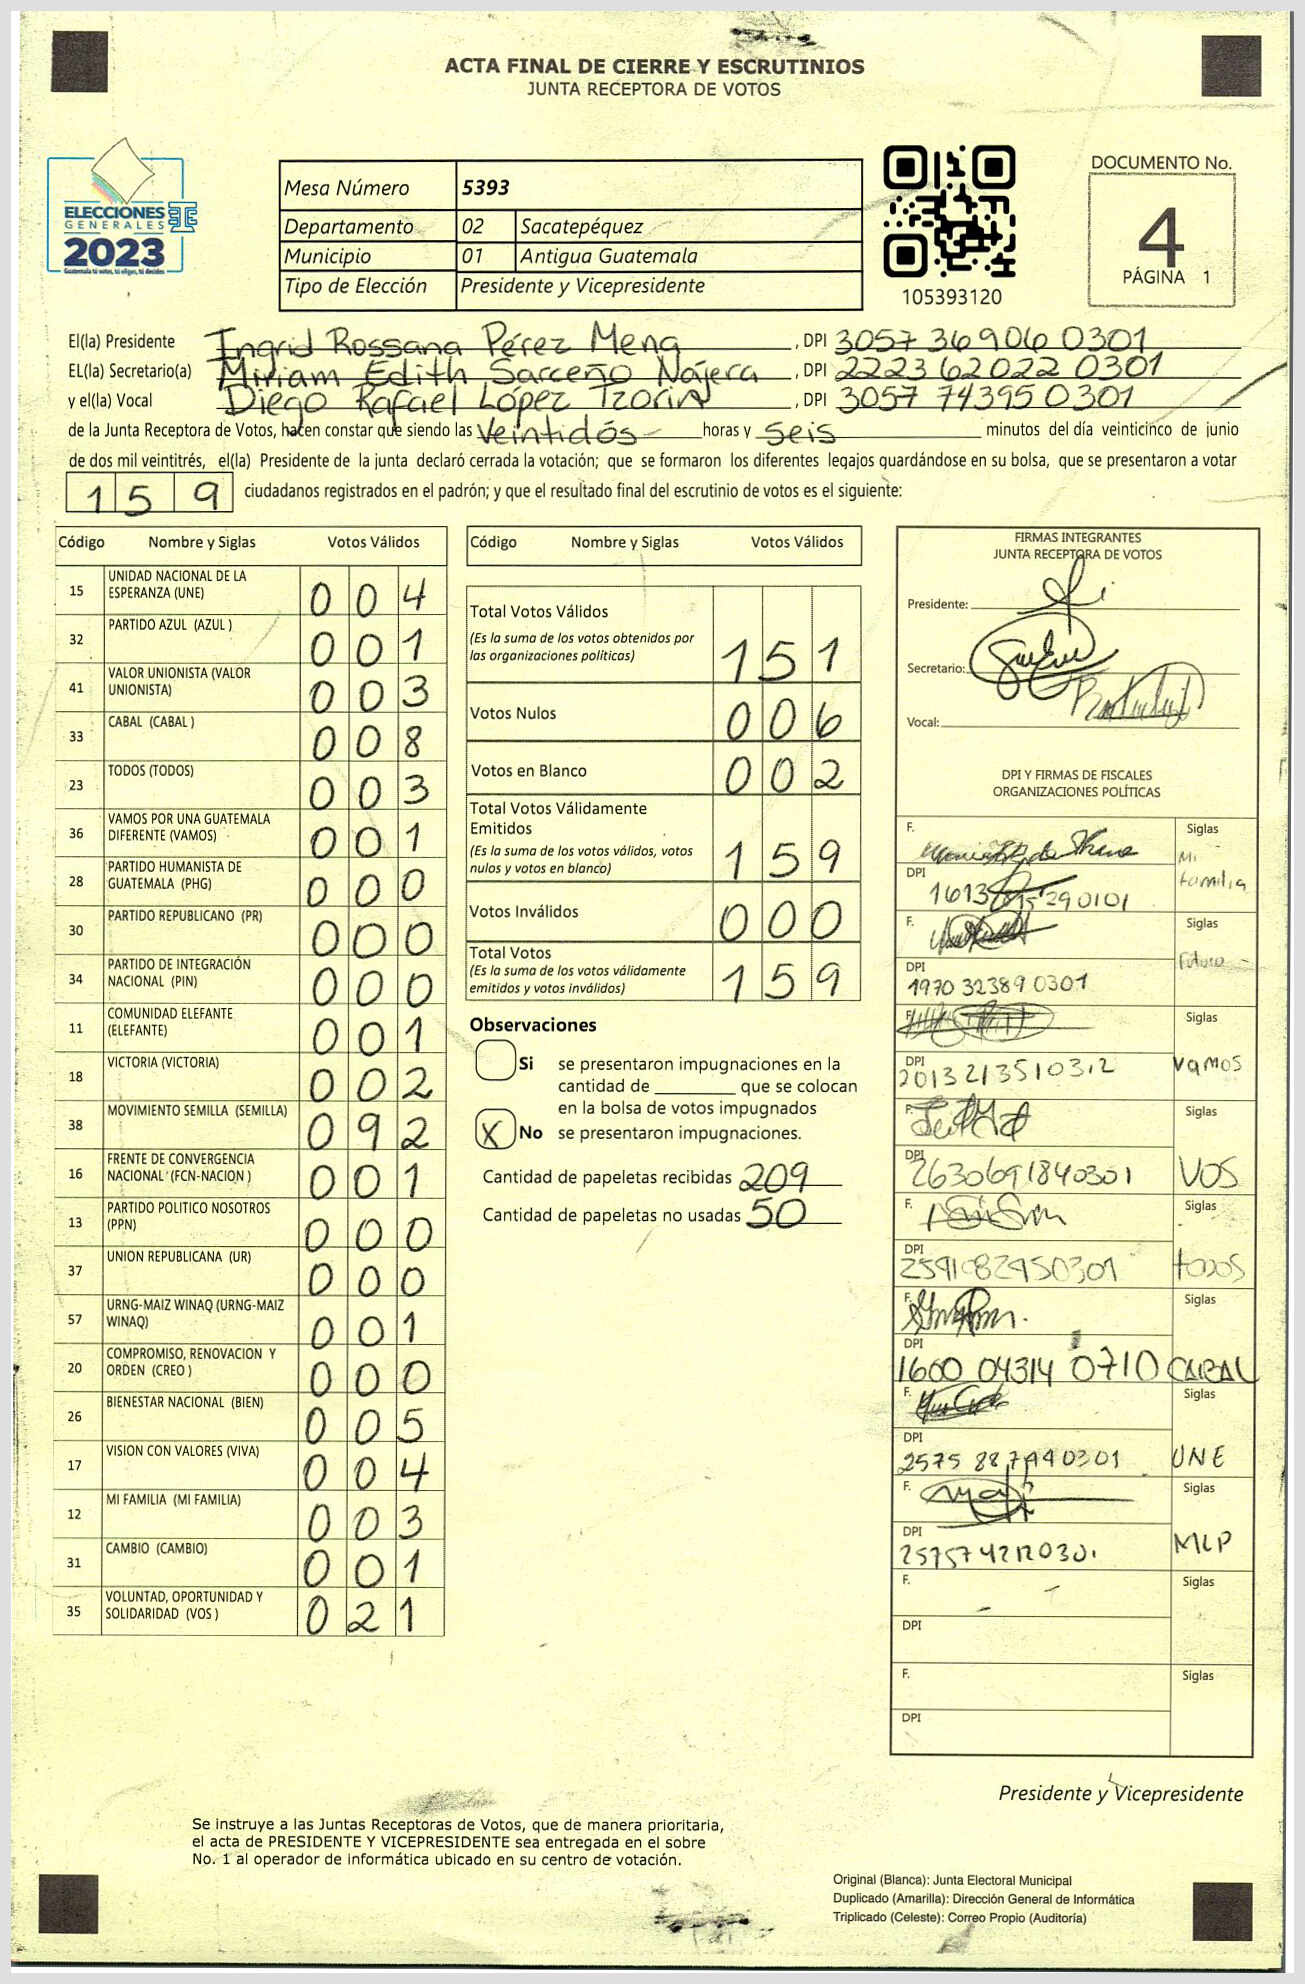 ACTA FINAL DE CIERRE Y ESCRUTINIOS
JUNTA RECEPTORA DE VOTOS
ELECCIONES
GENERALES
2023
Guatemala tú votas, tú eliges, tú decides
Mesa Número 5393
Departamento 02 Sacatepéquez
Municipio 01 Antigua Guatemala
Tipo de Elección Presidente y Vicepresidente
105393120
DOCUMENTO No.
4
PÁGINA 1
El(la) Presidente Ingrid Rossana Pérez Mena, DPI 3057 36906 0301
EL(la) Secretario(a) Miriam Edith Sarceño Nájera, DPI 2223 62022 0301
y el(la) Vocal Diego Rafael López Tzorin, DPI 3057 74395 0301
de la Junta Receptora de Votos, hacen constar que siendo las Veintidós horas y seis minutos del día veinticinco de junio
de dos mil veintitrés, el(la) Presidente de la junta declaró cerrada la votación; que se formaron los diferentes legajos quardándose en su bolsa, que se presentaron a votar
159 ciudadanos registrados en el padrón; y que el resultado final del escrutinio de votos es el siguiente:
Código Nombre y Siglas Votos Válidos
15 UNIDAD NACIONAL DE LA ESPERANZA (UNE) 0 0 4
32 PARTIDO AZUL (AZUL ) 0 0 1
41 VALOR UNIONISTA (VALOR UNIONISTA) 0 0 3
33 CABAL (CABAL ) 0 0 8
23 TODOS (TODOS) 0 0 3
36 VAMOS POR UNA GUATEMALA DIFERENTE (VAMOS) 0 0 1
28 PARTIDO HUMANISTA DE GUATEMALA (PHG) 0 0 0
30 PARTIDO REPUBLICANO (PR) 0 0 0
34 PARTIDO DE INTEGRACIÓN NACIONAL (PIN) 0 0 0
11 COMUNIDAD ELEFANTE (ELEFANTE) 0 0 1
18 VICTORIA (VICTORIA) 0 0 2
38 MOVIMIENTO SEMILLA (SEMILLA) 0 9 2
16 FRENTE DE CONVERGENCIA NACIONAL (FCN-NACION ) 0 0 1
13 PARTIDO POLITICO NOSOTROS (PPN) 0 0 0
37 UNION REPUBLICANA (UR) 0 0 0
57 URNG-MAIZ WINAQ (URNG-MAIZ WINAQ) 0 0 1
20 COMPROMISO, RENOVACION Y ORDEN (CREO ) 0 0 0
26 BIENESTAR NACIONAL (BIEN) 0 0 5
17 VISION CON VALORES (VIVA) 0 0 4
12 MI FAMILIA (MI FAMILIA) 0 0 3
31 CAMBIO (CAMBIO) 0 0 1
35 VOLUNTAD, OPORTUNIDAD Y SOLIDARIDAD (VOS ) 0 2 1
Código Nombre y Siglas Votos Válidos
Total Votos Válidos
(Es la suma de los votos obtenidos por
las organizaciones políticas) 1 5 1
Votos Nulos 0 0 6
Votos en Blanco 0 0 2
Total Votos Válidamente
Emitidos
(Es la suma de los votos válidos, votos
nulos y votos en blanco) 1 5 9
Votos Inválidos 0 0 0
Total Votos
(Es la suma de los votos válidamente
emitidos y votos inválidos) 1 5 9
Observaciones
Si se presentaron impugnaciones en la
cantidad de ________ que se colocan
en la bolsa de votos impugnados
X No se presentaron impugnaciones.
Cantidad de papeletas recibidas 209
Cantidad de papeletas no usadas 50
FIRMAS INTEGRANTES
JUNTA RECEPTORA DE VOTOS
Presidente:
Secretario:
Vocal:
DPI Y FIRMAS DE FISCALES
ORGANIZACIONES POLÍTICAS
F. Siglas
Mi familia
DPI
F. Siglas
Futuro
DPI 1970 32389 0301
F. Siglas
DPI 2013213510312 Vamos
F. Siglas
DPI 2630691840301 VOS
F. Siglas
DPI todos
F. Siglas
DPI 1600 04314 0710 CABAL
F. Siglas
DPI UNE
F. Siglas
DPI MLP
F. Siglas
DPI
F. Siglas
DPI
Presidente y Vicepresidente
Se instruye a las Juntas Receptoras de Votos, que de manera prioritaria,
el acta de PRESIDENTE Y VICEPRESIDENTE sea entregada en el sobre
No. 1 al operador de informática ubicado en su centro de votación.
Original (Blanca): Junta Electoral Municipal
Duplicado (Amarilla): Dirección General de Informática
Triplicado (Celeste): Correo Propio (Auditoría)